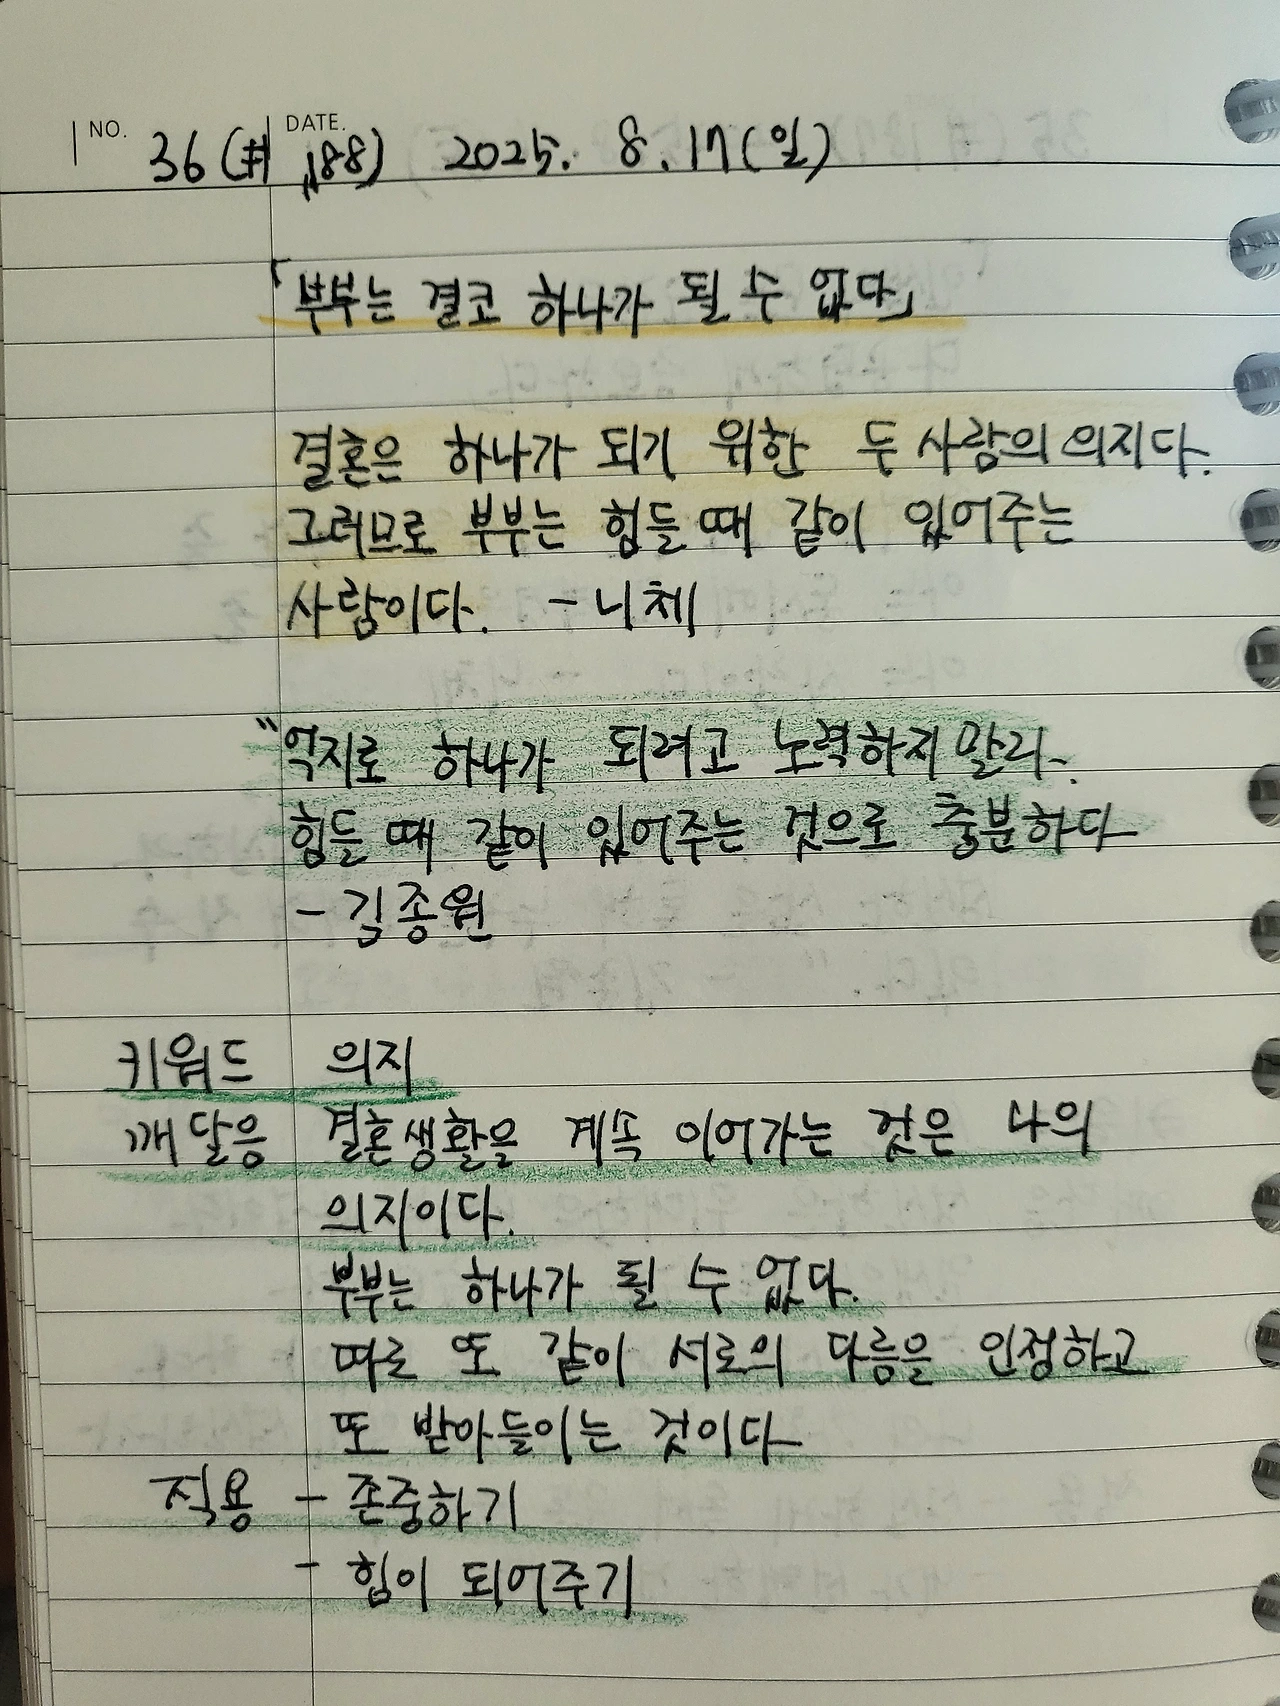 NO. 36 (#188) DATE. 2025. 8. 17 (일)
「부부는 결코 하나가 될 수 없다」
결혼은 하나가 되기 위한 두 사람의 의지다.
그러므로 부부는 힘들 때 같이 있어주는
사람이다. - 니체
"억지로 하나가 되려고 노력하지 말라.
힘들 때 같이 있어주는 것으로 충분하다
- 김종원
키워드 의지
깨달음 결혼생활을 계속 이어가는 것은 나의
의지이다.
부부는 하나가 될 수 없다.
따로 또 같이 서로의 다름을 인정하고
또 받아들이는 것이다
적용 - 존중하기
- 힘이 되어주기